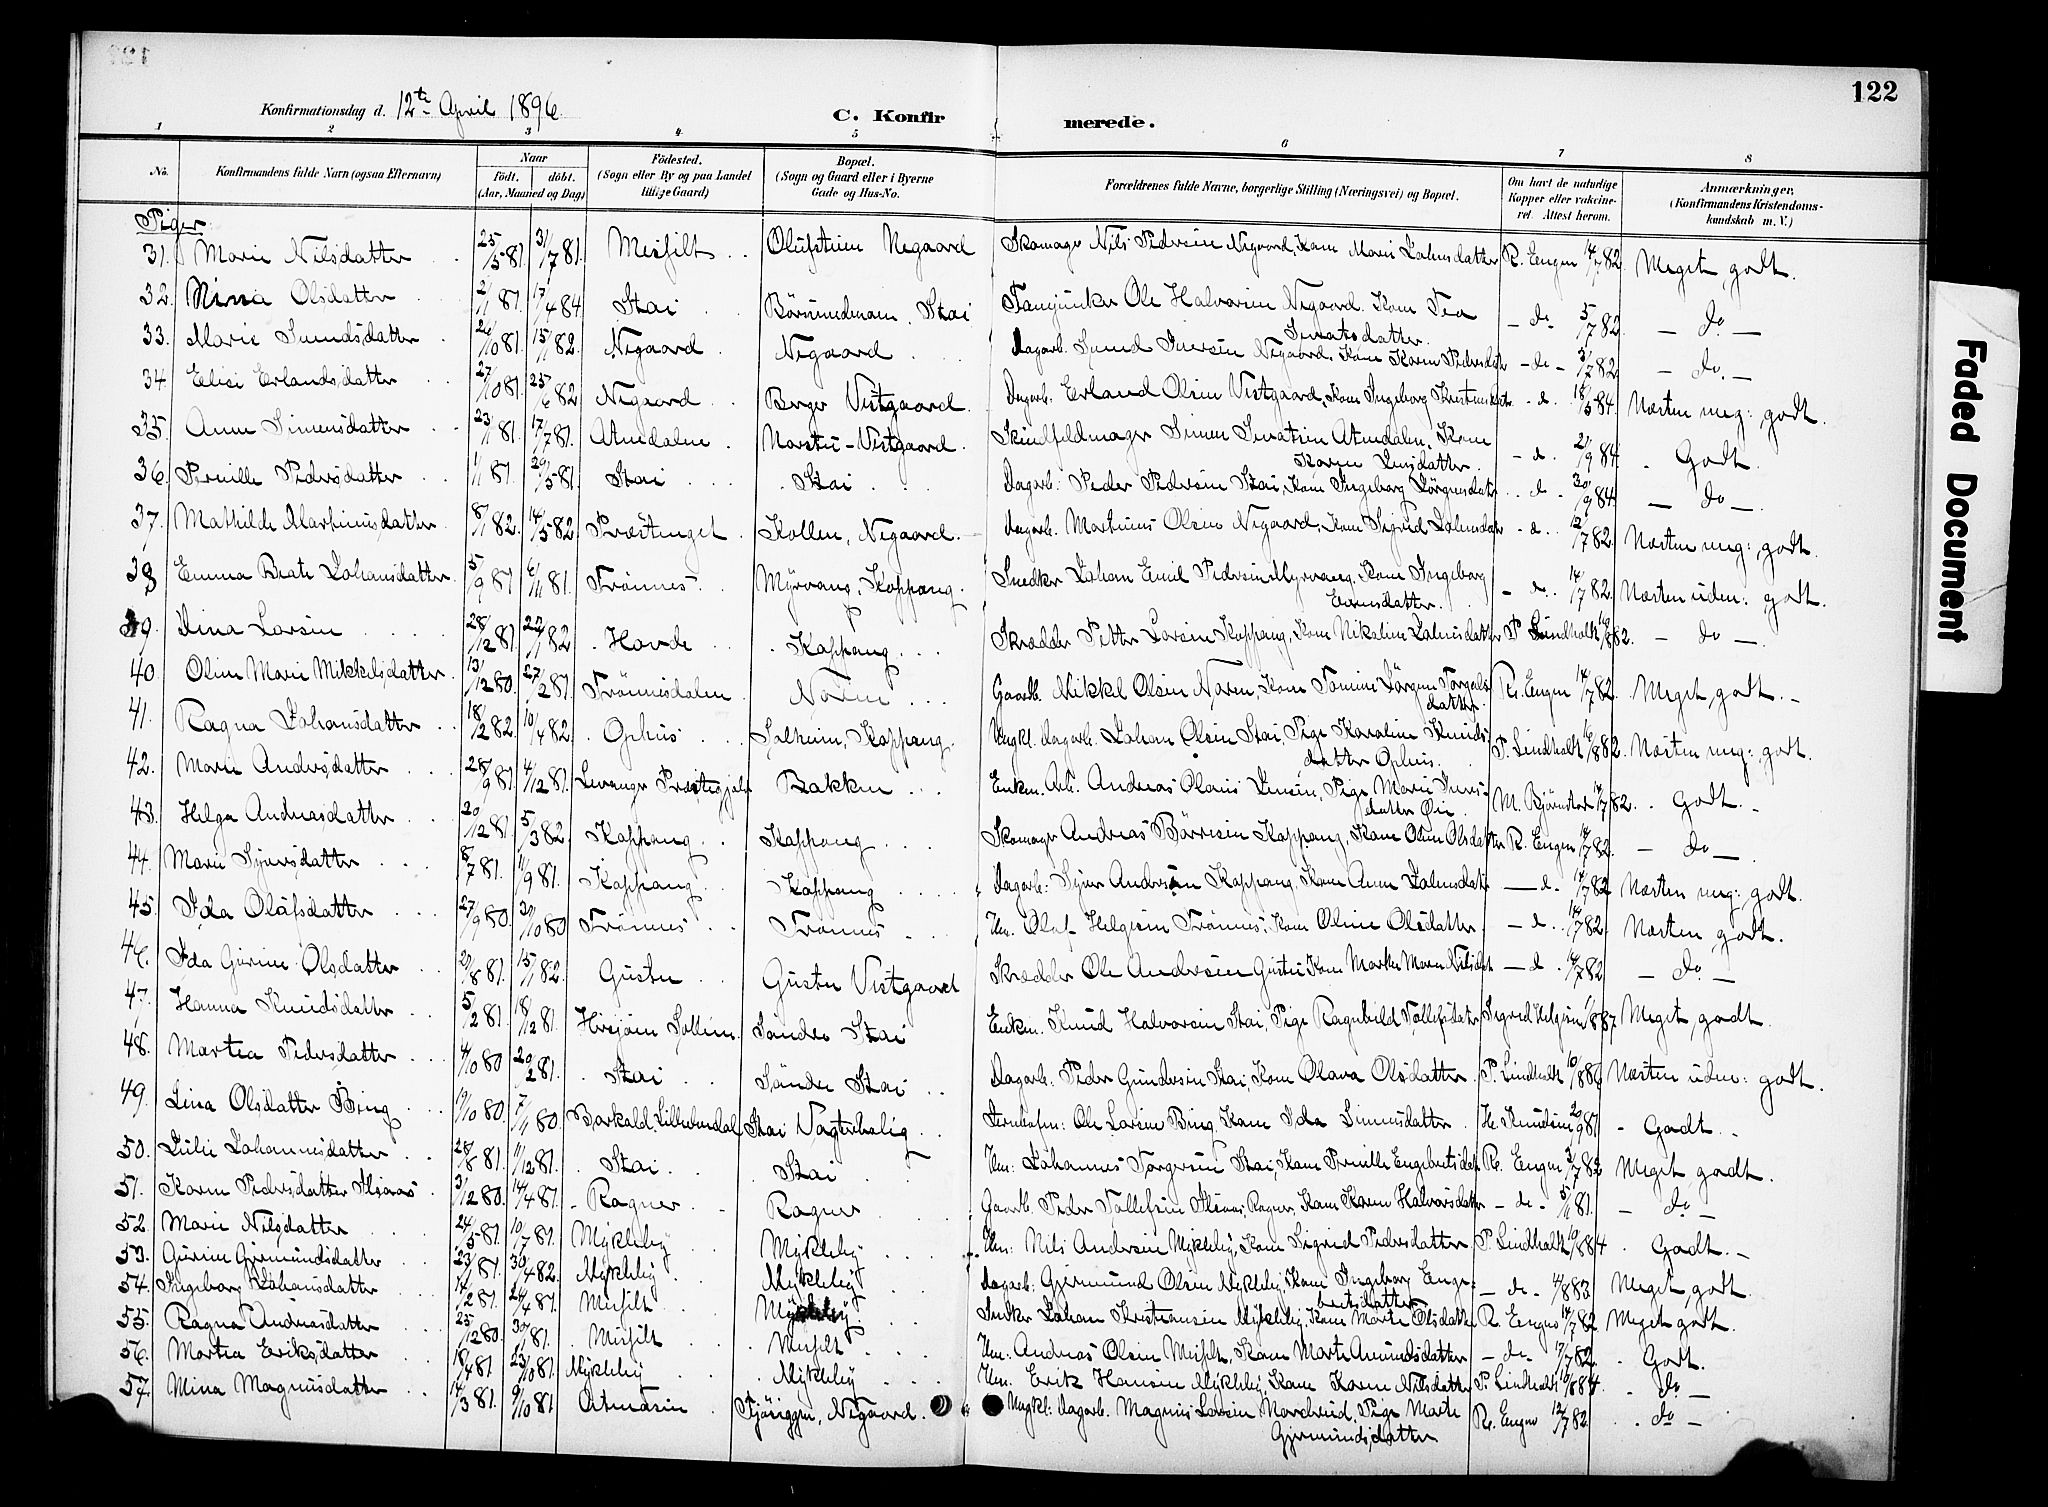 122
Konfirmationsdag d. 12te April 1896.
C. Konfirmerede.
1 2 3 4 5 6 7 8
No. Konfirmandens fulde Navn (ogsaa Efternavn) Naar født. døbt. (Aar, Maaned og Dag) Födested. (Sogn eller By og paa Landet tillige Gaard) Bopæl. (Sogn og Gaard eller i Byerne Gade og Hus-No. Forældrenes fulde Navne, borgerlige Stilling (Næringsvei) og Bopæl. Om havt de naturlige Kopper eller vaccineret. Attest herom. Anmærkninger, (Konfirmandens Kristendomskundskab m. V.)
Piger
31. Marie Nilsdatter 25/5 81. 31/7 81. Messelt Olufsteien Negaard Skomager Nils Pedersen Negaard, Kone Mari Halvorsdatter R. Engen 14/7 82. Meget godt.
32. Olsdatter 81. 17/4 84 Stai Stai Ole Halvorsen Negaard. Kone Tea Sivatsdatter. - do - 5/7 82. - do -
33. Marie Svendsdatter 26/10 81. 15/1 82. Negaard Negaard Dagarb. Svend Iversen Negaard, Kone Karen Pedersdatr - do - 3/7 82. - do. -
34. Erlandsdatter 27/10 81. 25/6 82 Negaard Berger Vestgaard Dagarb. Erland Olsen Vestgaard, Kone Ingeborg - d. 18/5 84. Næsten meg: godt.
35. Anne Simensdatter 23/1 81. 17/7 81. Atnedalen Norstu-Vestgaard Simen Sivatsen Atnedalen, Kone Karen Jensdatter. - d. 21/9 84. Godt.
36. Pernille Pedersdatter 1/1 81. 29/5 81. Stai Stai Dagarb: Peder Pedersen Stai, Kone Ingeborg Jørgensdatr - d. 30/9 84. - do -
37. Mathilde Martinusdatter 8/1 82. 14/5 82. Præstenget Kollen, Negaard. Dagarb. Martinus Olsen Negaard, Kone Sigrid - d. 12/7 82. Næsten meg: godt.
38 Emma Beate Johansdatter. 5/9 81 6/11 81. Trønnes Myrvang, Koppang. Snedker Johan Emil Pedersen Myrvang, Kone Ingeborg Evensdatter. - d. 14/7 82. Næsten uden: godt.
39. Dina Larsen 28/12 81. 22/1 82 Hovde Koppang Skrædder Petter Larsen Koppang, Kone Nikoline P Lindholt 16/8 82. - do -
40. Oline Marie Mikkelsdatter 13/12 80. 27/2 81. Trønnesdalen Noren Gaardb. Mikkel Olsen Noren, Kone Tomine Jørgine Torgalsdatter. R. Engen 14/7 82. Meget godt. -
41. Ragna Johansdatter 18/2 82. 10/4 82. Ophus Solheim, Koppang. Ungkl. dagarb. Johan Olsen Stai, Pige Karoline Knudsdatter Ophus. P. Lindholt 16/8 82. Næsten meg: godt.
42. Marie Andersdatter 28/9 81. 4/12 81. Levanger Præstegjeld Bakken Enkem. Arb. Andreas Olaus Jensen, Pige Marie Iversdatter Øie. M. Bjørnstad 17/7 82. Godt. -
43. Helga Andreasdatter 20/12 81. 5/3 82. Koppang Koppang Skomager Andreas Børresen Koppang, Kone Oline Olsdatter R. Engen 14/7 82. - do -
44. Marie Syversdatter 8/7 81. 11/9 81. Koppang Koppang Dagarb: Syver Andersen Koppang, Kone Anne - d. 14/7 82 Næsten meg: godt.
45. Ida Olafsdatter 27/9 80. 31/10 80 Trønnes Trønnes Hm. Olaf Helgesen Trønnes, Kone Oline Olsdatter - d. 14/7 82. Næsten godt.
46. Ida Gurine Olsdatter 29/8 81. 15/1 82. Gusten Gusten Vestgaard Skrædder Ole Andersen Gusten Kone Marthe Marie Nilsdat - d. 14/7 82. - do -
47. Hanna Knudsdatter 5/2 81. 18/12 81. Hirsjøen Sollien Søndre Stai Enkem. Knud Halvorsen Stai, Pige Ragnhild Tollefsdater Sigrid Helgesen 1/8 87. Meget godt.
48. Martea Pedersdatter 4/10 80 20/2 81. Stai Søndre Stai Dagarb. Peder Gundersen Stai, Kone Olava Olsdatter P. Lindholt 10/8 86 Næsten uden: godt.
49. Lina Olsdatter Bing 19/10 80. 7/11 80. Barkald, Lilleelvedal Stai Vogterbolig Ole Larsen Bing Kone Ida Simensdatter H. Knudsen 20/9 81 - Godt -
50. Julie Johannesdatter 28/8 81. 11/12 81. Stai Stai Hm: Johannes Torgersen Stai, Kone Pernille Engebretsdat. R. Engen 3/7 83 Meget godt.
51. Karen Pedersdatter 3/12 80. 14/4 81. Ragner Ragner Gaardb. Peder Tollefsen Ragner, Kone Karen Halvorsdatter - do - 5/11 81. - do -
52. Marie Nilsdatter 24/5 81. 10/7 81. Mykleby Mykleby Hm: Nils Andersen Mykleby, Kone Sigrid Pedersdatter P. Lindholt 10/8 84. Godt. -
53. Gurine Gjermundsdatter 23/1 81. 30/4 82. Mykleby Mykleby Dagarb: Gjermund Olsen Mykleby, Kone Ingeborg Engebretsdatter - do - 4/8 83. Meget godt.
54. Ingeborg Johansdatter 14/2 81. 24/4 81. Messelt Johan Kristiansen Mykleby, Kone Marte Olsdatter R. Engen 14/7 82. Meget godt.
55. Ragna Andreasdatter 25/12 80. 81. Messelt Messelt Hm: Andreas Olsen Messelt, Kone Marte Amundsdatter - do - 17/7 82. Godt.
56. Martea Eriksdatter 18/4 81 23/10 81. Mykleby Mykleby Hm. Erik Hansen Mykleby, Kone Karen Nilsdatter P. Lindholt 10/8 84. - do -
57. Mina Magnusdatter 14/3 81. 9/10 81 Atnaosen Negaard. Ungkl: dagarb. Magnus Larsen Pige Marte Gjermundsdatter R. Engen 12/7 82. - do -
Faded Document